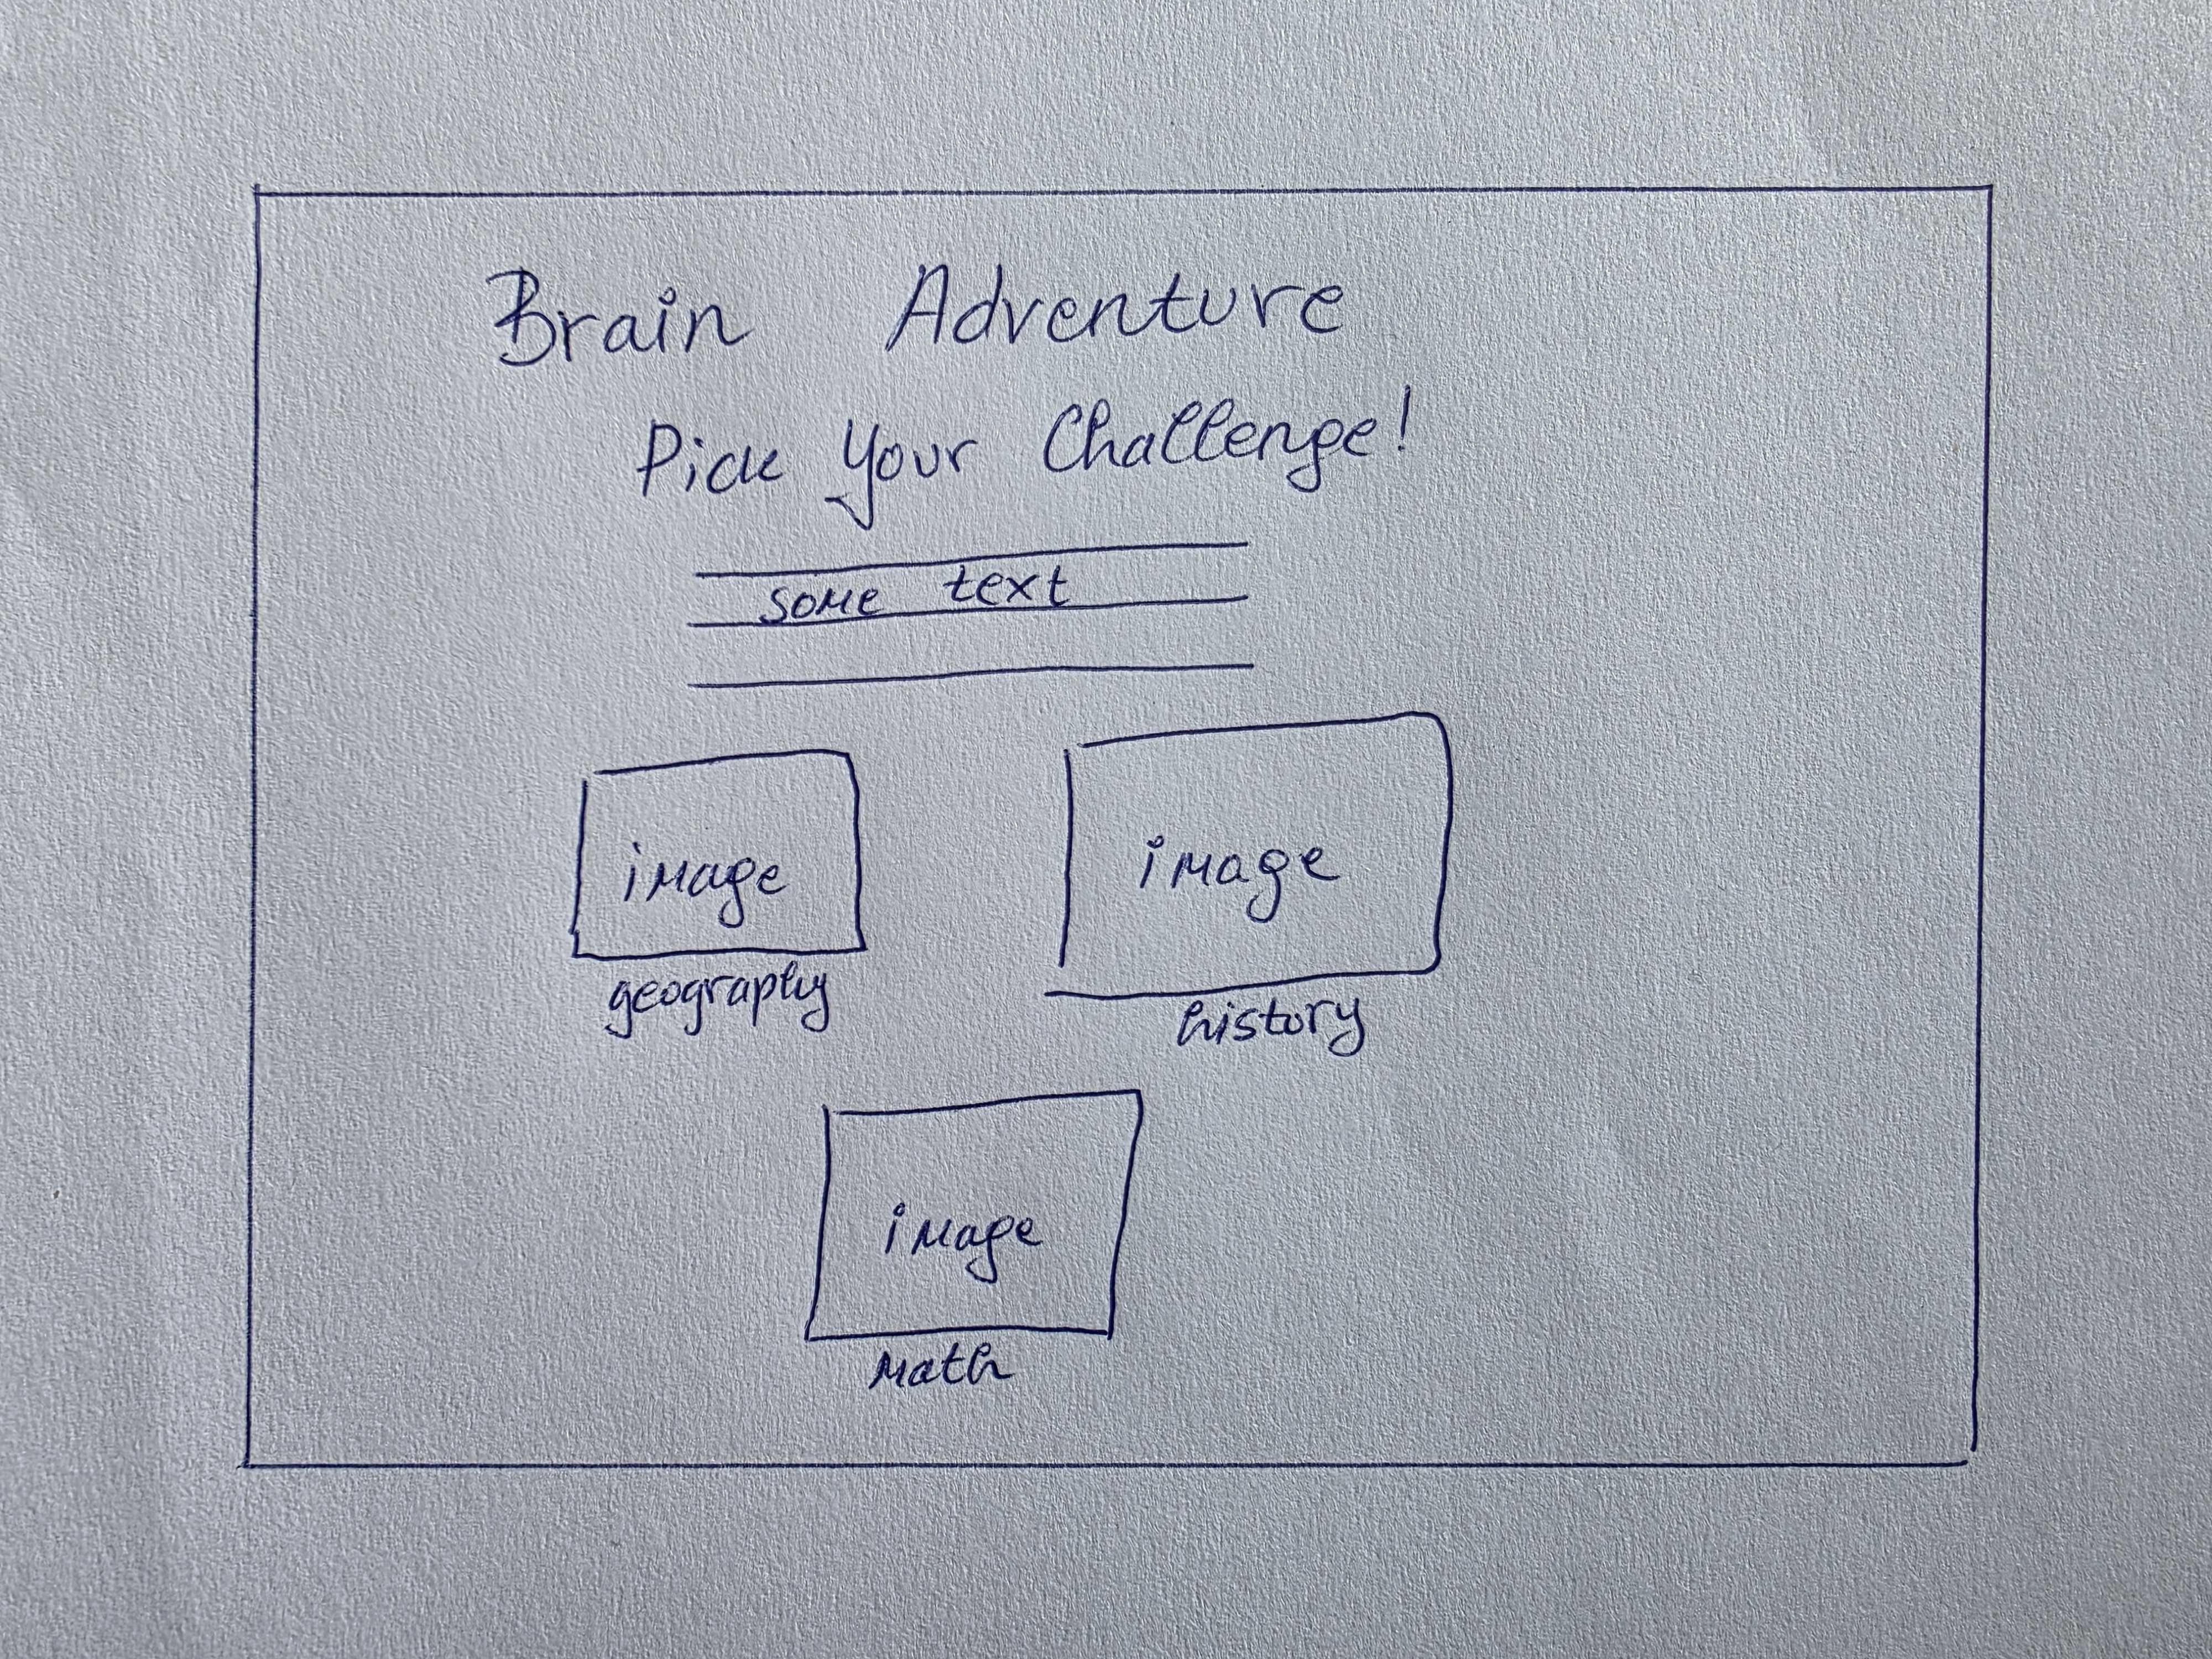 Brain Adventure
Pick Your Challenge!
some text
image
image
geography
history
image
math